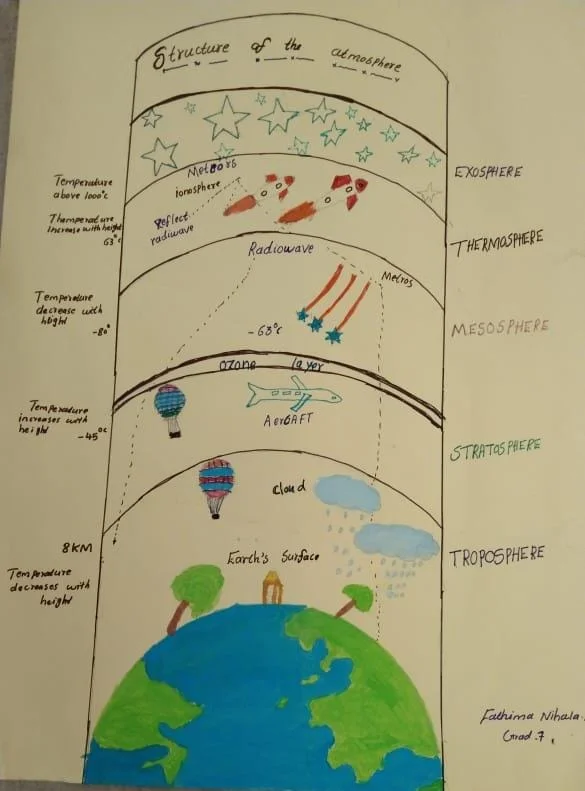 Structure of the atmosphere
Meteors
Temperature
above 1000°c
ionosphere
EXOSPHERE
Themperature
Increase with height
63°c
Reflect
radiwave
THERMOSPHERE
Radiowave
Metros
Temperature
decrease with
hight
-80°
-63°c
MESOSPHERE
ozone layer
Temperature
increases with
height
-45°c
AerGAFT
STRATOSPHERE
cloud
8KM
Earth's Surface
TROPOSPHERE
Temperature
decreases with
height
Fathima Nihala.
Grad.7,